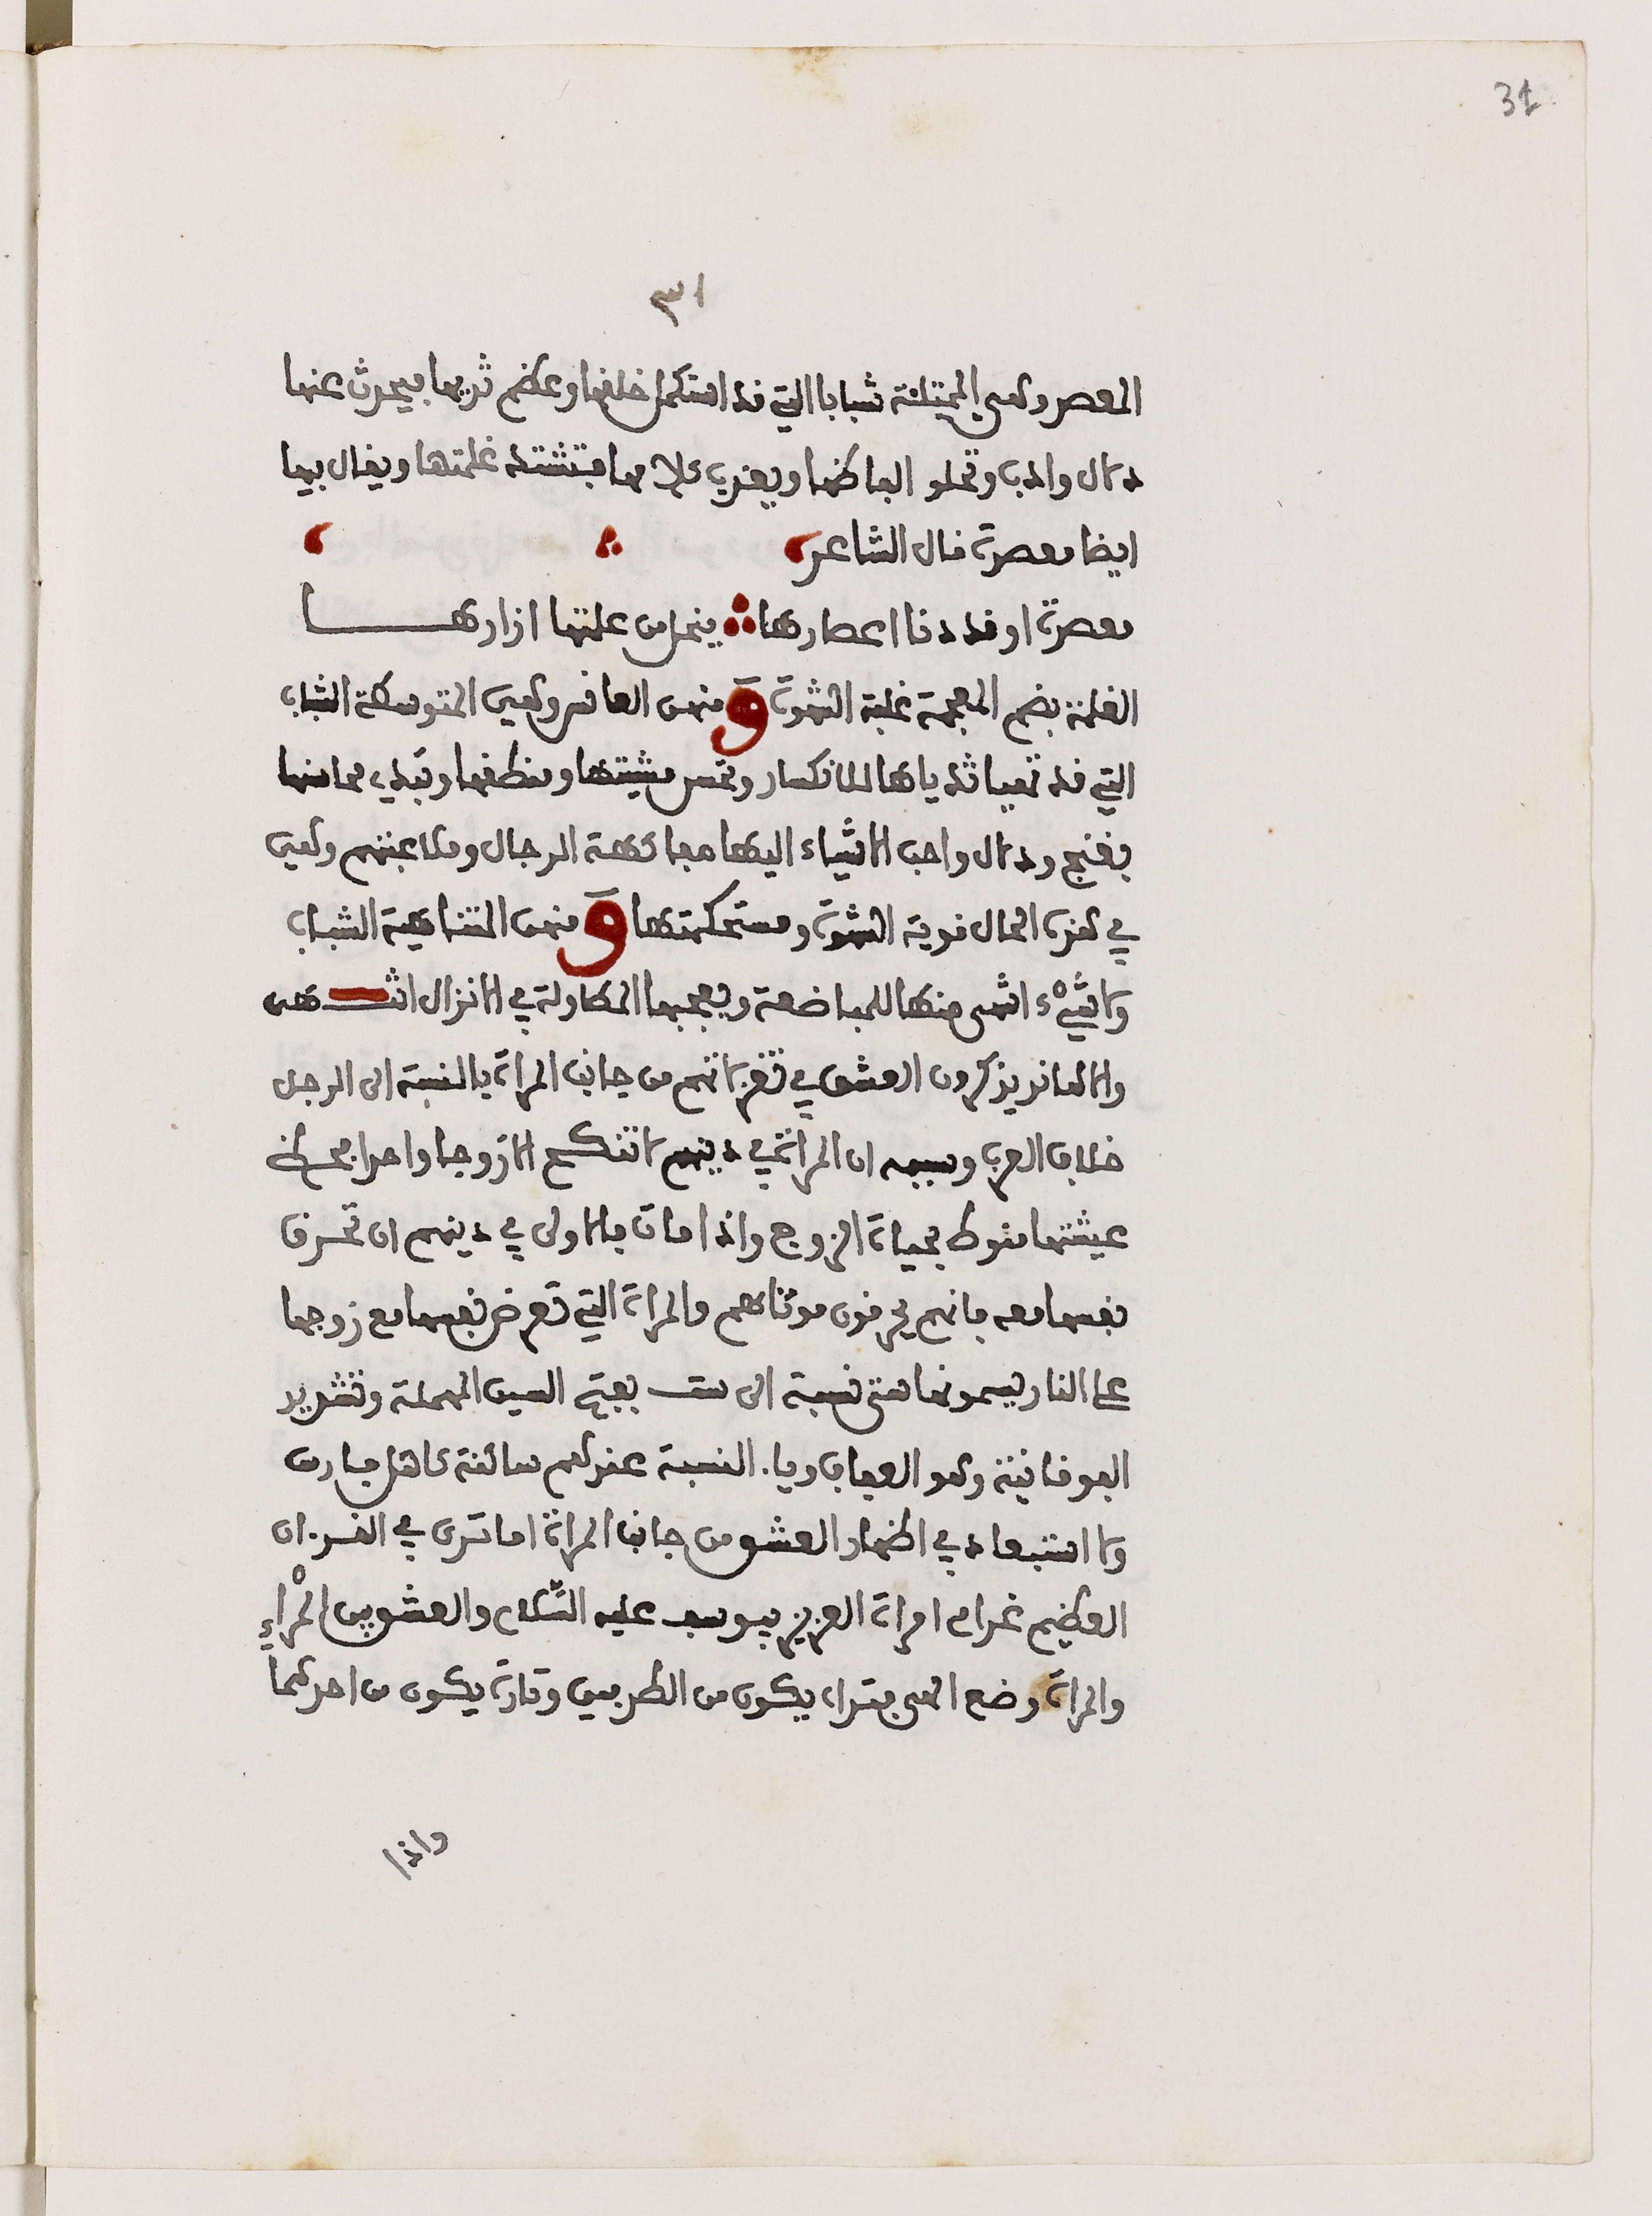 31
٣١
المعصر وهي الممتلئة شبابا التي قد استكمل خلقها وعظم ثديها فيحدث عنها
دلال وادب وتحلو الفاظها ويعذب كلامها فتشتد غلمتها ويقال فيها
ايضا معصرة قال الشاعر
معصرة او قد دنا اعصارها ينحل من غلمتها ازارها
الغلمة بضم المعجمة غلبة الشهوة ومنهن العانس وهي المتوسطة الشباب
التي قد تهيا ثدياها للانكسار وتحسن مشيتها ومنطقها وتبدي محاسنها
بغنج ودلال واحب الاشياء اليها مفاكهة الرجال وملاعبتهم وهي
في هذه الحال قوية الشهوة ومستحكمتها ومنهن المتناهية الشباب
ولا شيء اشهى منها للمباضعة ويعجبها المطاولة في الانزال انتهى
والاهاند يذكرون العشق في تغزلاتهم من جانب المراة بالنسبة الى الرجل
خلاف العرب وسببه ان المراة في دينهم لا تنكح الا زوجا واحدا فحظ
عيشتها منوط بحياة الزوج واذا مات فالاولى في دينهم ان تحرق
نفسها معه فانهم يحرقون موتاهم والمراة التي تعرض نفسها مع زوجها
على النار يسمونها ستي نسبة الى ست بفتح السين المهملة وتشديد
الفوقانية وهو العفاف وياء النسبة عندهم ساكنة كاهل فارس
ولا استبعاد في اظهار العشق من جانب المراة اما ترى في القرءان
العظيم غرام امراة العزيز بيوسف عليه السّلام والعشق بين المرْاءِ
والمراة وضع الهي فتراه يكون من الطرفين وتارة يكون من احدهما
واذا